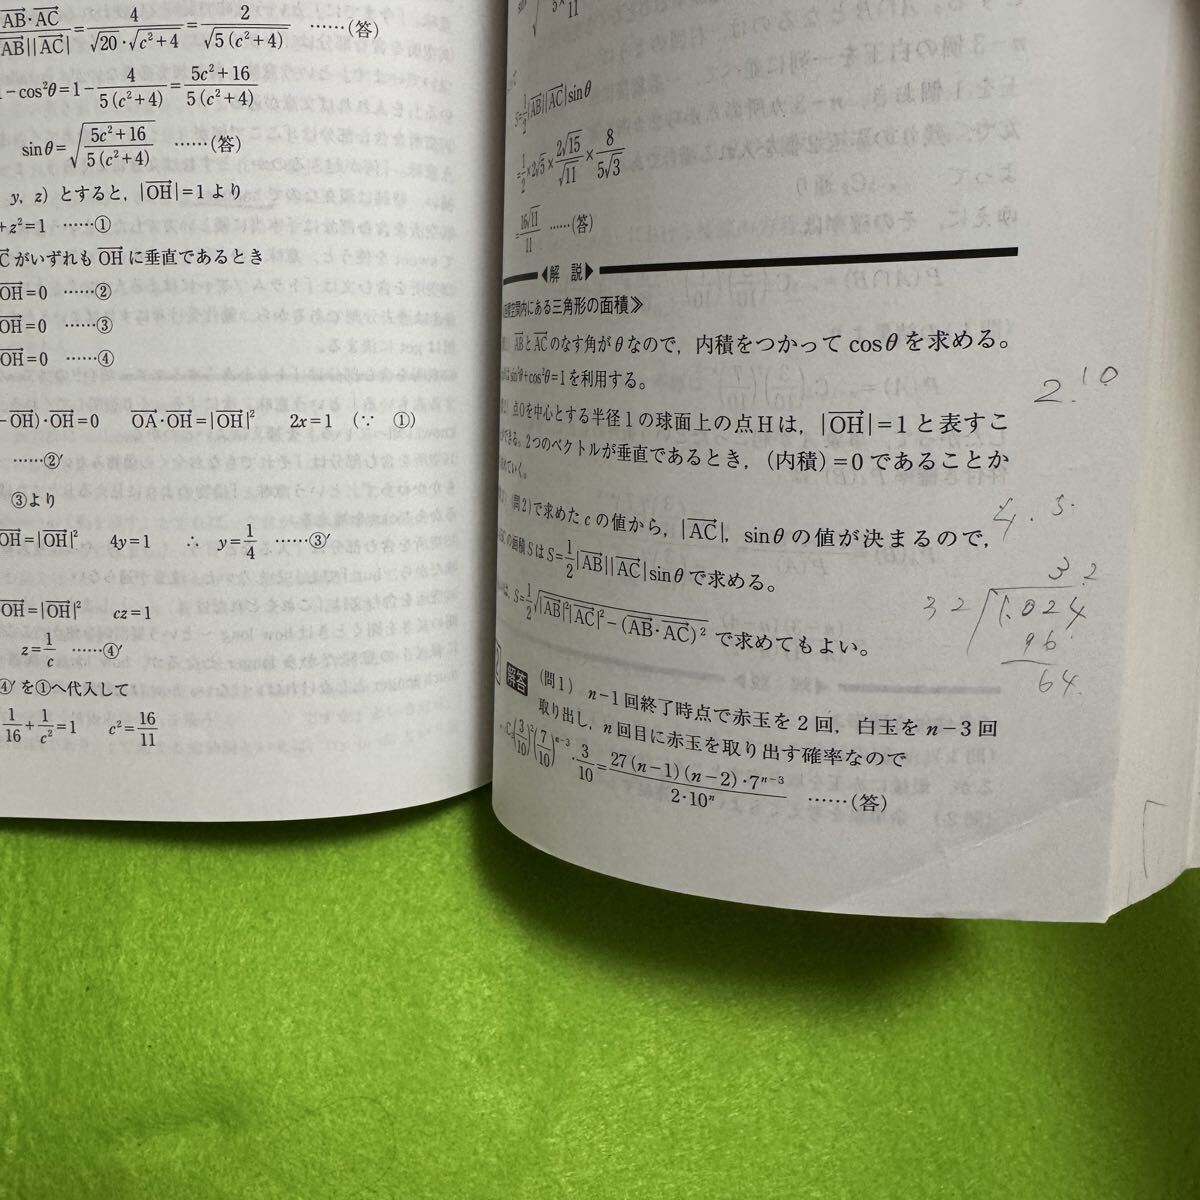 AB·AC / |AB||AC| = 4/(√20·√(c²+4)) = 2/√(5(c²+4)) ……(答)
1−cos²θ=1−4/(5(c²+4))=(5c²+16)/(5(c²+4))
sinθ=√((5c²+16)/(5(c²+4))) ……(答)
y, z) とすると，|OH|=1より
+z²=1 ……①
Cがいずれも OH に垂直であるとき
OH=0 ……②
OH=0 ……③
OH=0 ……④
−OH)·OH=0 OA·OH=|OH|² 2x=1 (∵ ①)
……②′
③より
OH=|OH|² 4y=1 ∴ y=1/4 ……③′
OH=|OH|² cz=1
z=1/c ……④′
④′を①へ代入して
1/16+1/c²=1 c²=16/11
S=1/2|AB||AC|sinθ
=1/2×2√5×2√15/√11×8/5√3
=16√11/11 ……(答)
◀解 説▶
空間内にある三角形の面積≫
ABとACのなす角がθなので，内積をつかってcosθを求める。
sin²θ+cos²θ=1を利用する。
点Oを中心とする半径1の球面上の点Hは，|OH|=1と表すこ
ができる。2つのベクトルが垂直であるとき，(内積)=0であることか
(問2)で求めたcの値から，|AC|，sinθの値が決まるので，
の面積SはS=1/2|AB||AC|sinθで求める。
は，S=1/2√(|AB|²|AC|²−(AB·AC)²)で求めてもよい。
2 解答 (問1) n−1回終了時点で赤玉を2回，白玉をn−3回
取り出し，n回目に赤玉を取り出す確率なので
C₂(3/10)²(7/10)ⁿ⁻³·3/10=27(n−1)(n−2)·7ⁿ⁻³/2·10ⁿ ……(答)
2.10
4.5.
32
32
1024
96
64